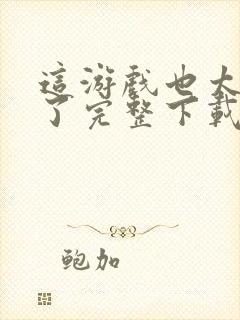 這游戲也太
了完整下載
鲍加